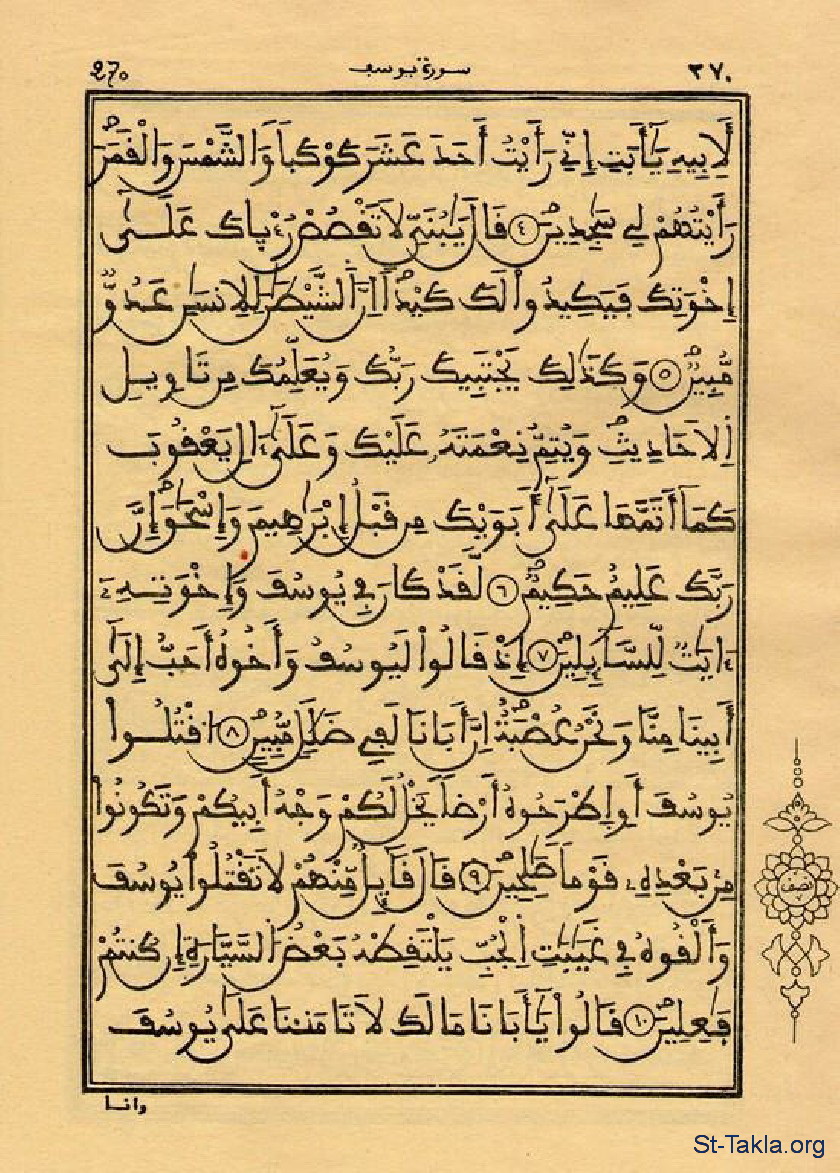 270 سورة يوسف ٢٧٠
لِأَبِيهِ يَٰٓأَبَتِ إِنِّي رَأَيْتُ أَحَدَ عَشَرَ كَوْكَباٗ وَالشَّمْسَ وَالْقَمَرَ
رَأَيْتُهُمْ لِي سَٰجِدِينَ ٤ قَالَ يَٰبُنَيِّ لَا تَقْصُصْ رُءْيَاكَ عَلَىٰٓ
إِخْوَتِكَ فَيَكِيدُواْ لَكَ كَيْداًۖ اِنَّ اَلشَّيْطَٰنَ لِلِانسَٰنِ عَدُوّٞ
مُّبِينٞ ٥ وَكَذَٰلِكَ يَجْتَبِيكَ رَبُّكَ وَيُعَلِّمُكَ مِن تَاوِيلِ
اِلَاحَادِيثِ وَيُتِمُّ نِعْمَتَهُۥ عَلَيْكَ وَعَلَىٰٓ ءَالِ يَعْقُوبَ
كَمَآ أَتَمَّهَا عَلَىٰٓ أَبَوَيْكَ مِن قَبْلُ إِبْرَٰهِيمَ وَإِسْحَٰقَ إِنَّ
رَبَّكَ عَلِيمٌ حَكِيمٞ ٦ لَّقَدْ كَانَ فِي يُوسُفَ وَإِخْوَتِهِۦٓ
ءَايَٰتٞ لِّلسَّآئِلِينَ ٧ إِذْ قَالُواْ لَيُوسُفُ وَأَخُوهُ أَحَبُّ إِلَىٰٓ
أَبِينَا مِنَّا وَنَحْنُ عُصْبَةٌ اِنَّ أَبَانَا لَفِي ضَلَٰلٖ مُّبِينٍ ٨ اُقْتُلُواْ
يُوسُفَ أَوِ اِطْرَحُوهُ أَرْضاٗ يَخْلُ لَكُمْ وَجْهُ أَبِيكُمْ وَتَكُونُواْ
مِنۢ بَعْدِهِۦ قَوْماٗ صَٰلِحِينَ ٩ قَالَ قَآئِلٞ مِّنْهُمْ لَا تَقْتُلُواْ يُوسُفَ
وَأَلْقُوهُ فِي غَيَٰبَٰتِ اِلْجُبِّ يَلْتَقِطْهُ بَعْضُ اُلسَّيَّارَةِ إِن كُنتُمْ
فَٰعِلِينَ ١٠ قَالُواْ يَٰٓأَبَانَا مَا لَكَ لَا تَامَ۬نَّا عَلَىٰ يُوسُفَ
وانا
نصف
St-Takla.org